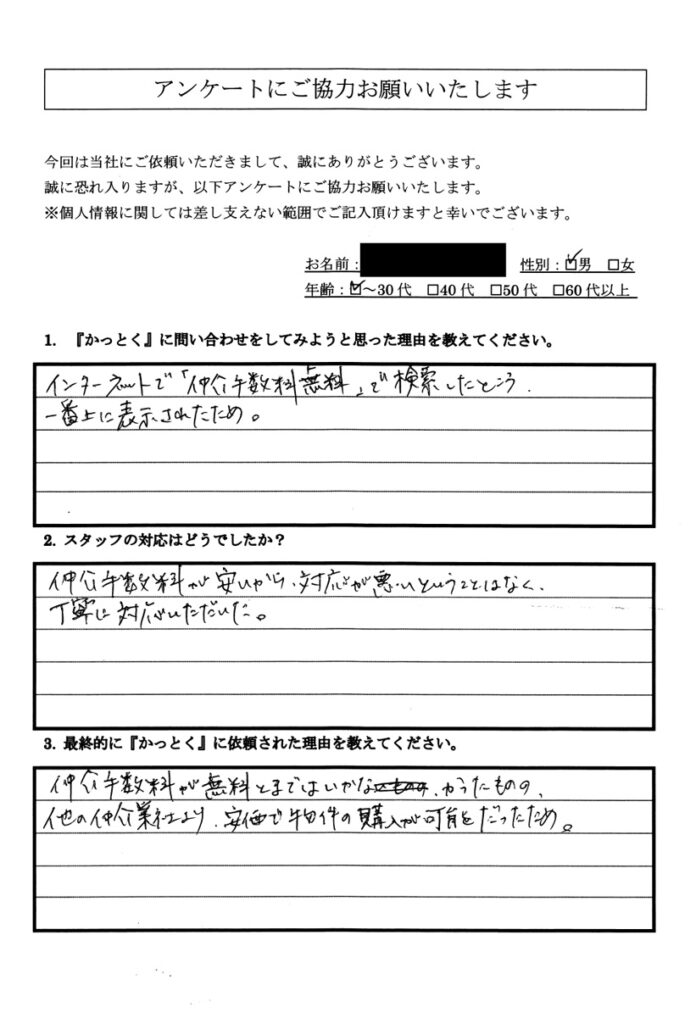 アンケートにご協力お願いいたします
今回は当社にご依頼いただきまして、誠にありがとうございます。
誠に恐れ入りますが、以下アンケートにご協力お願いいたします。
※個人情報に関しては差し支えない範囲でご記入頂けますと幸いでございます。
お名前： 性別：☑男 □女
年齢：☑～30代 □40代 □50代 □60代以上
1. 『かっとく』に問い合わせをしてみようと思った理由を教えてください。
インターネットで「仲介手数料無料」で検索したところ、
一番上に表示されたため。
2. スタッフの対応はどうでしたか？
仲介手数料が安いから、対応が悪いということはなく、
丁寧に対応いただいた。
3. 最終的に『かっとく』に依頼された理由を教えてください。
仲介手数料が無料とまではいかなかったものの、
他の仲介業社より、安価で物件の購入が可能だったため。